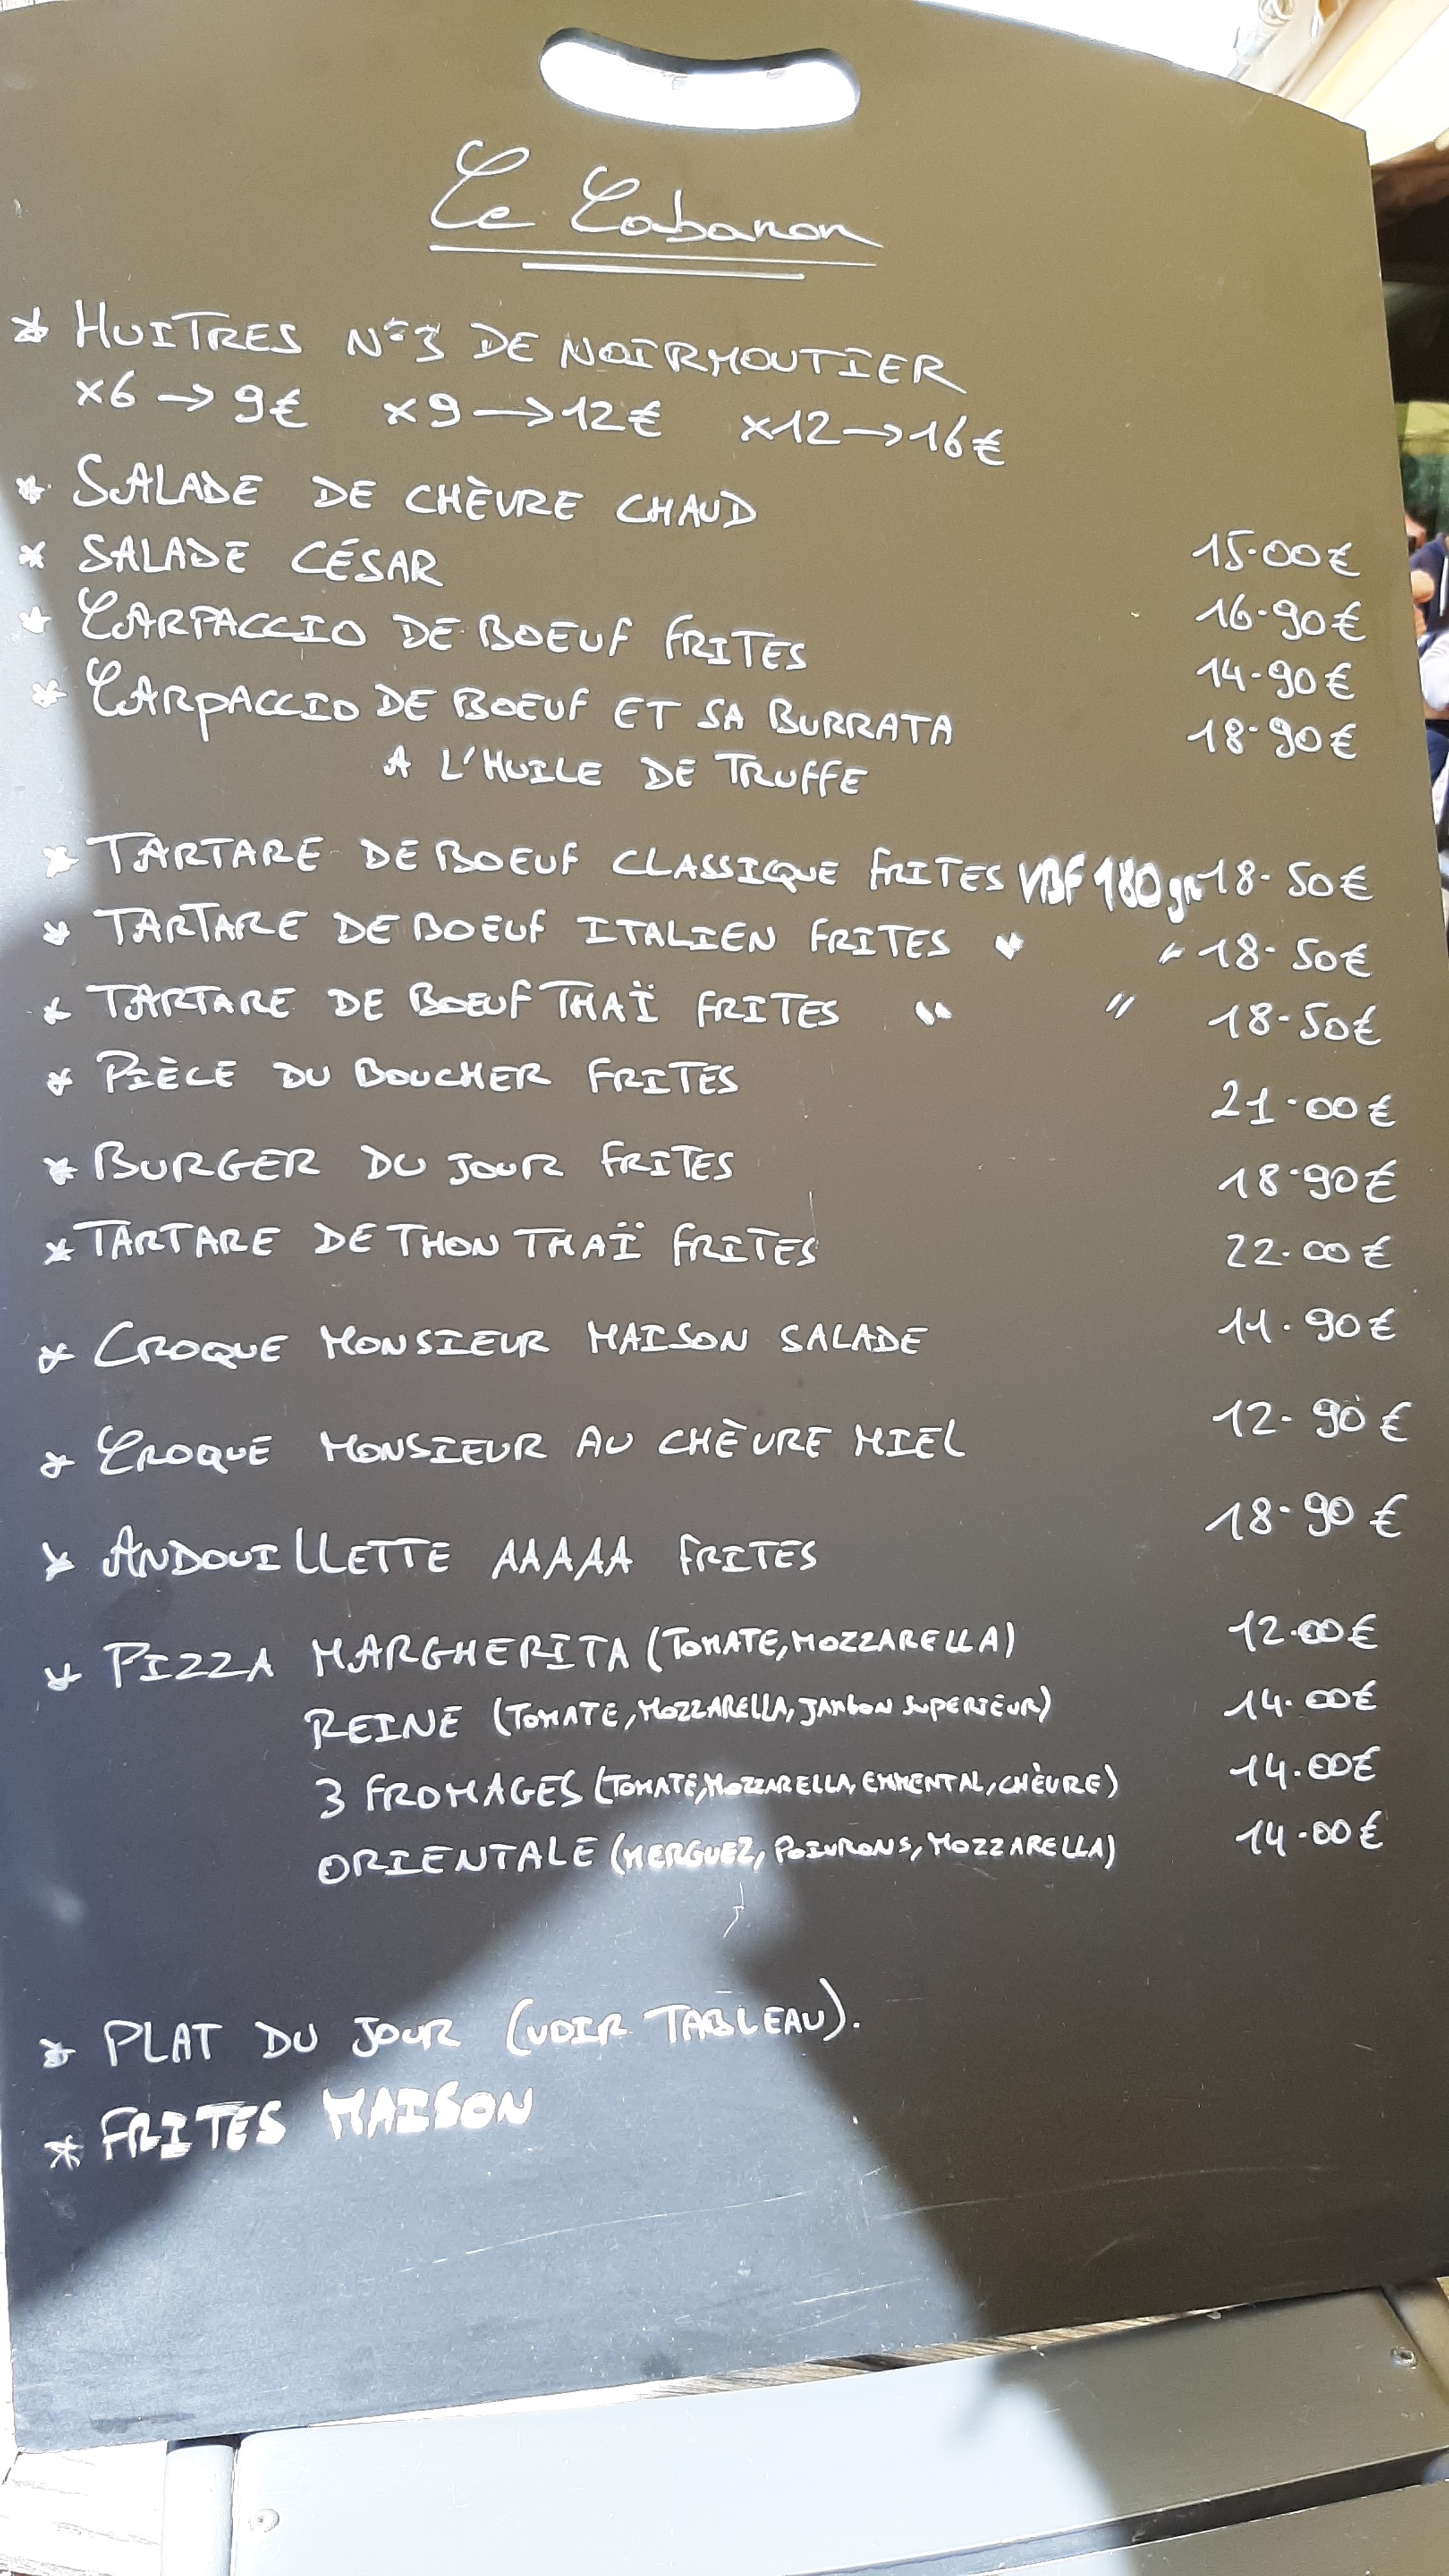 Le Cabanon
* HUITRES N°3 DE NOIRMOUTIER
x6 → 9€ x9 → 12€ x12 → 16€
* SALADE DE CHÈVRE CHAUD 15.00€
* SALADE CÉSAR 16.90€
* CARPACCIO DE BOEUF FRITES 14.90€
* CARPACCIO DE BOEUF ET SA BURRATA 18.90€
A L'HUILE DE TRUFFE
* TARTARE DE BOEUF CLASSIQUE FRITES VBF 180 gr 18.50€
* TARTARE DE BOEUF ITALIEN FRITES " " 18.50€
* TARTARE DE BOEUF THAÏ FRITES " " 18.50€
* PIÈCE DU BOUCHER FRITES 21.00€
* BURGER DU JOUR FRITES 18.90€
* TARTARE DE THON THAÏ FRITES 22.00€
* CROQUE MONSIEUR MAISON SALADE 11.90€
* CROQUE MONSIEUR AU CHÈVRE MIEL 12.90€
* ANDOUILLETTE AAAAA FRITES 18.90€
* PIZZA MARGHERITA (TOMATE, MOZZARELLA) 12.00€
REINE (TOMATE, MOZZARELLA, JAMBON SUPERIEUR) 14.00€
3 FROMAGES (TOMATE, MOZZARELLA, EMMENTAL, CHÈVRE) 14.00€
ORIENTALE (MERGUEZ, POIVRONS, MOZZARELLA) 14.00€
* PLAT DU JOUR (VOIR TABLEAU).
* FRITES MAISON